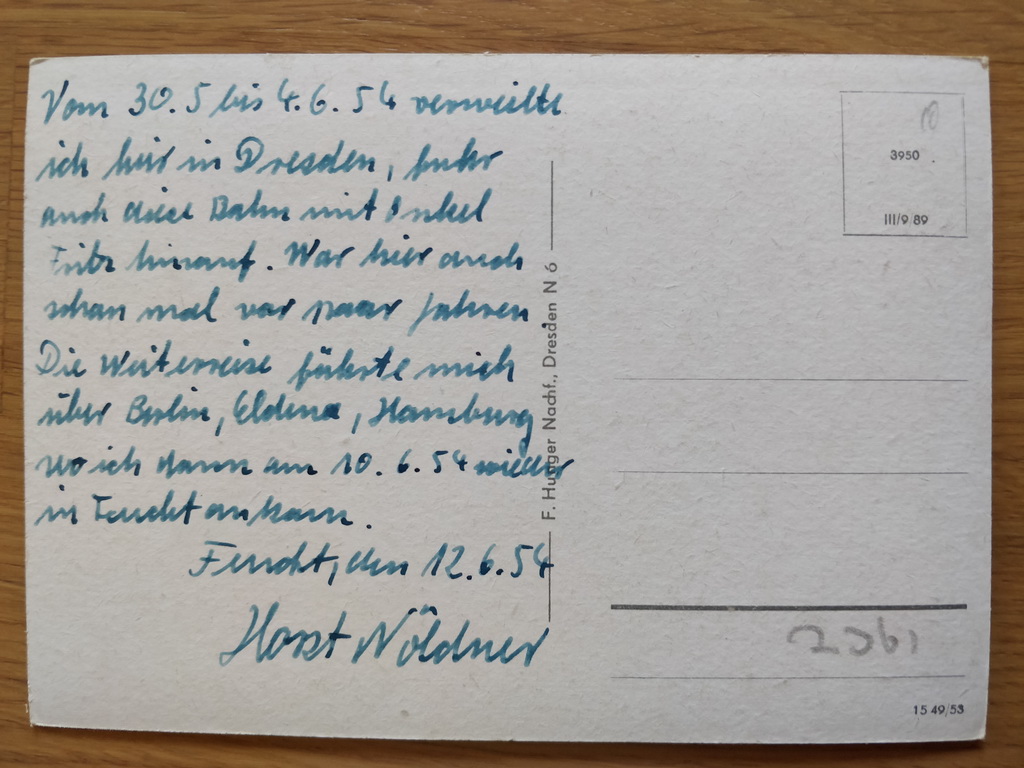 Vom 30.5 bis 4.6.54 verweilte
ich hier in Dresden, fuhr
auch diese Bahn mit Onkel
Fritz hinauf. War hier auch
schon mal vor paar Jahren
Die Weiterreise führte mich
über Berlin, Eldena, Hamburg
wo ich dann am 10.6.54 wieder
in Feucht ankam.
Feucht, den 12.6.54
Horst Nöldner
F. Hunger Nachf., Dresden N 6
10
3950
III/9 89
15 49/53